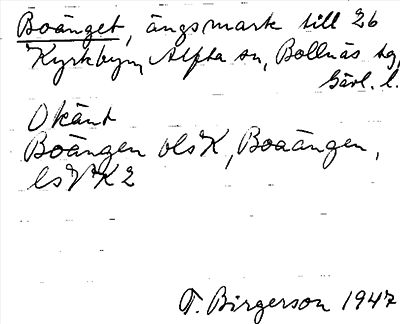 Boänget, ängsmark till 26
Kyrkbyn, Alfta sn, Bollnäs tg,
Gävl. l.
Okänt
Boängen ols K, Boaängen,
ls V K2
T. Birgerson 1947